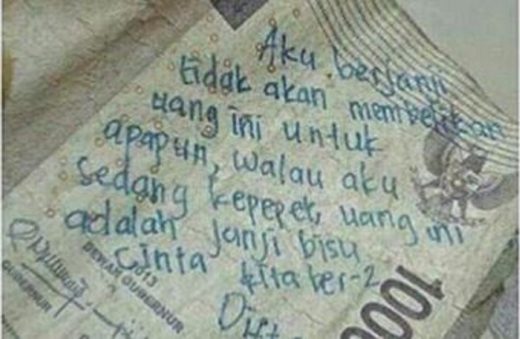 Aku berjanji
tidak akan membelikan
uang ini untuk
apapun, walau aku
sedang kepepet, uang ini
adalah janji bisu
cinta kita ber-2
2013
DEWAN GUBERNUR
GUBERNUR
1000